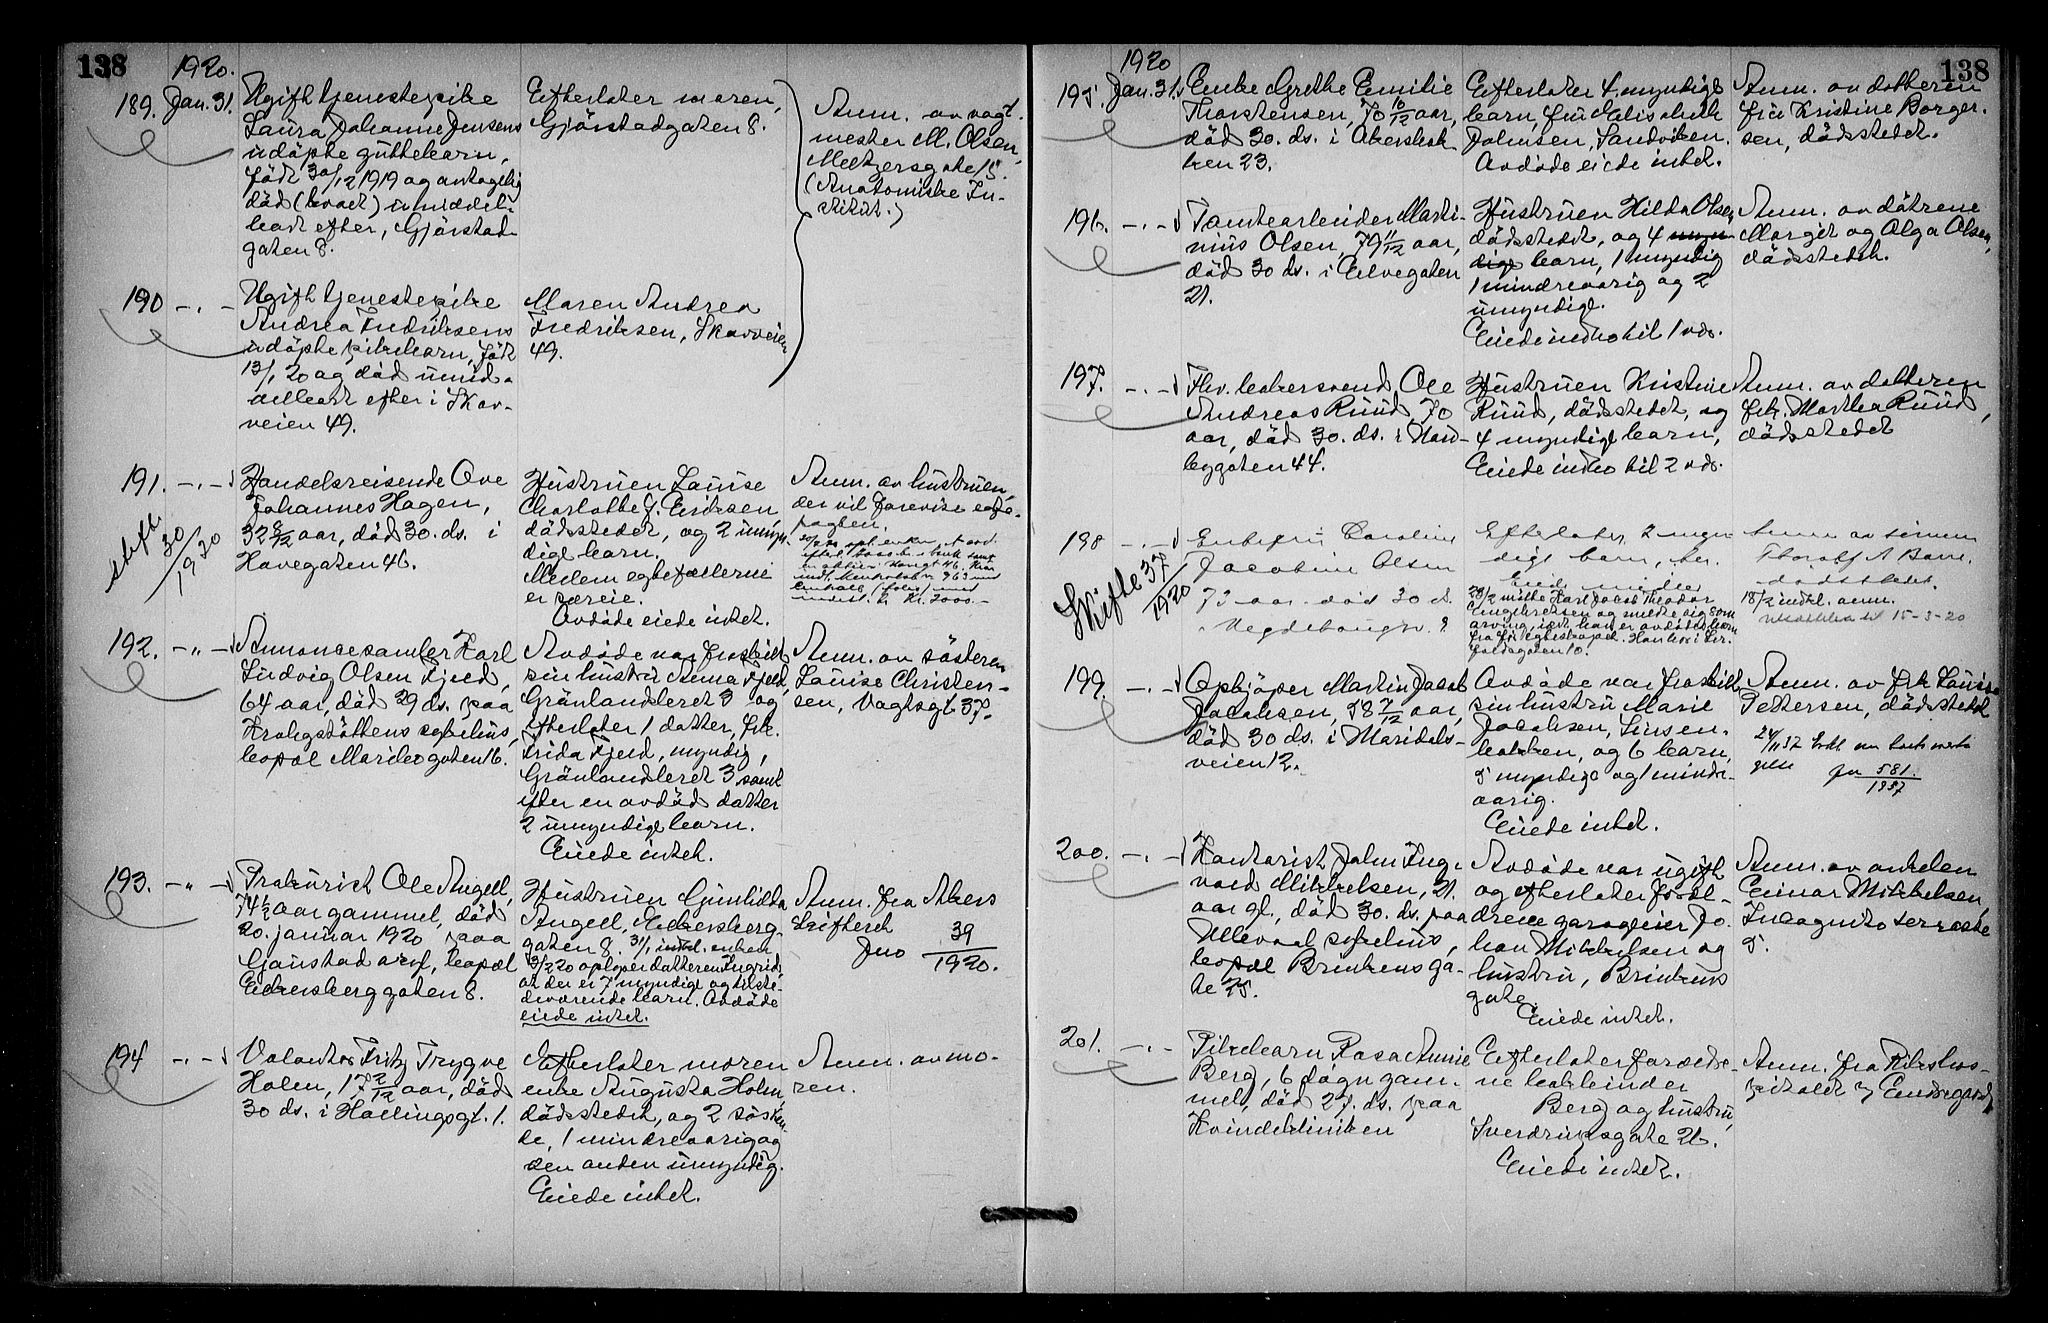 138
1920.
189. Jan. 31.
Ugift tjenestepike
Laura Johanne Jensens
udøpte guttebarn,
født 30/12 1919 og antagelig
død (kvalt) umiddel-
bart efter, Gjørstad-
gaten 8.
Efterlater moren,
Gjørstadgaten 8.
Anm. av vagt-
mester M. Olsen,
Meltzersgate 15.
(Anatomiske In-
stitut.)
190 -„-
Ugift tjenestepike
Andrea Fredriksens
udøpte pikebarn, født
13/1 20 og død umid-
delbart efter i Skov-
veien 49.
Maren Andrea
Fredriksen, Skovveien
49.
191. -„-
Skifte 30/1920
Handelsreisende Ove
Johannes Hagen,
32 8/12 aar, død 30. ds. i
Havegaten 46.
Hustruen Louise
Charlotte f. Eriksen,
dødsstedet, og 2 umyn-
dige barn.
Mellem egtefællerne
er særeie.
Avdøde eiede intet.
Anm. av hustruen,
der vil forevise egte-
pagten.
192. -„-
Annoncesamler Karl
Ludvig Olsen Fjeld,
64 aar, død 29 ds. paa
Krohgstøttens sykehus,
bopæl Maribogaten 16.
Avdøde var fraskilt
sin hustru Anna Fjeld,
Grønlandsleret 3 og
efterlater 1 datter, frk.
Frida Fjeld, myndig,
Grønlandsleret 3 samt
efter en avdød datter
2 umyndige barn.
Eiede intet.
Anm. av søsteren
Louise Christen-
sen, Vagtsgt. 37.
193. -„-
Prokurist Ole Angell,
74 1/2 aar gammel, død
20. januar 1920 paa
Gaustad asyl, bopæl
Eckersberggaten 8.
Hustruen Gunhilda
Angell, Eckersberg-
gaten 8. 31/1 indk. enken
3/2 20 oplyser datteren Ingrid,
at der er 7 myndige og tilste-
deværende barn. Avdøde
eiede intet.
Anm. fra Akers
Skifteret
Jno 39/1920.
194 -„-
Volontør Fritz Trygve
Holm, 17 2/12 aar, død
30 ds. i Hallingsgt. 1.
Efterlater moren
enke Augusta Holm,
dødsstedet, og 2 søsken-
de, 1 mindreaarig og
den anden umyndig.
Eiede intet.
Anm. av mo-
ren.
138
1920
195. Jan. 31.
Enke Grethe Emilie
Thorstensen, 70 10/12 aar,
død 30. ds. i Akersbak-
ken 23.
Efterlater 4 myndige
barn, fru Elisabeth
Johnsen, Sandviken.
Avdøde eiede intet.
Anm. av datteren
fru Kristine Borger-
sen, dødsstedet.
196. -„-
Tomtearbeider Marti-
nius Olsen, 79 11/12 aar,
død 30 ds. i Elvegaten
21.
Hustruen Hilda Olsen
dødsstedet, og 4 myn-
dige barn, 1 myndig
1 mindreaarig og 2
umyndige.
Eiede indbo til 1 vds.
Anm. av døtrene
Margit og Olga Olsen,
dødsstedet.
197. -„-
Fhv. bakersvend Ole
Andreas Ruud, 70
aar, død 30. ds. i Nord-
bygaten 44.
Hustruen Kristine
Ruud, dødsstedet, og
4 myndige barn,
Eiede indbo til 2 vds.
Anm. av datteren
frk. Martha Ruud,
dødsstedet
198 -„-
Skifte 37/1920
Enkefru Caroline
Jacobine Olsen
73 aar død 30 d.
Efterlater 2 myn-
dige barn,
Eiede midler
28/2 møtte Karl Jacob Theodor
Engebretsen og meldte sig som
arving, idet han er avdødes barn
Anm av sønnen
dødsstedet.
18/2 indkl. anm.
15-3-20
199. -„-
Opkjøper Martin Jacob
Jacobsen, 58 7/12 aar,
død 30 ds. i Maridals-
veien 12.
Avdøde var fraskilt
sin hustru Marie
Jacobsen, Linsen-
bakken, og 6 barn,
5 myndige og 1 mindre-
aarig.
Eiede intet.
Anm. av frk Louise
Pettersen, dødsstedet
24/11 37
jnr 581/1937
200. -„-
Kontorist John Ing-
vald Mikkelsen, 21
aar gl., død 30. ds. paa
Ullevaal sykehus,
bopæl Brinkens ga-
te 25.
Avdøde var ugift
og efterlater foræl-
drene garageeier Jo-
han Mikkelsen og
hustru, Brinkens
gate
Eiede intet.
Anm. av onkelen
Einar Mikkelsen,
Incognito terrasse
5.
201. -„-
Pikebarn Rosa Annie
Berg, 6 døgn gam-
mel, død 27. ds. paa
Kvindeklinikken
Efterlater forældre-
ne bokbinder
Berg og hustru,
Sverdrupsgate 26.
Eiede intet.
Anm. fra Rikshos-
pitalet v/ Endregaard